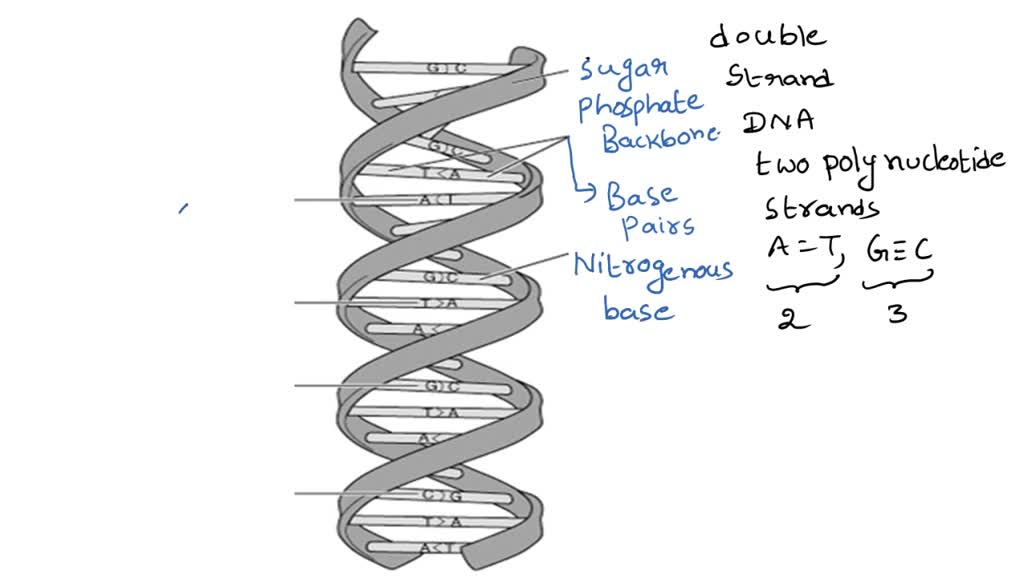 G C
G C
T < A
A < T
G C
T > A
A <
G C
T > A
A <
C G
T > A
A < T
Sugar
Phosphate
Backbone
Base
Pairs
Nitrogenous
base
double
Strand
DNA
two polynucleotide
Strands
A = T, G ≡ C
2 3